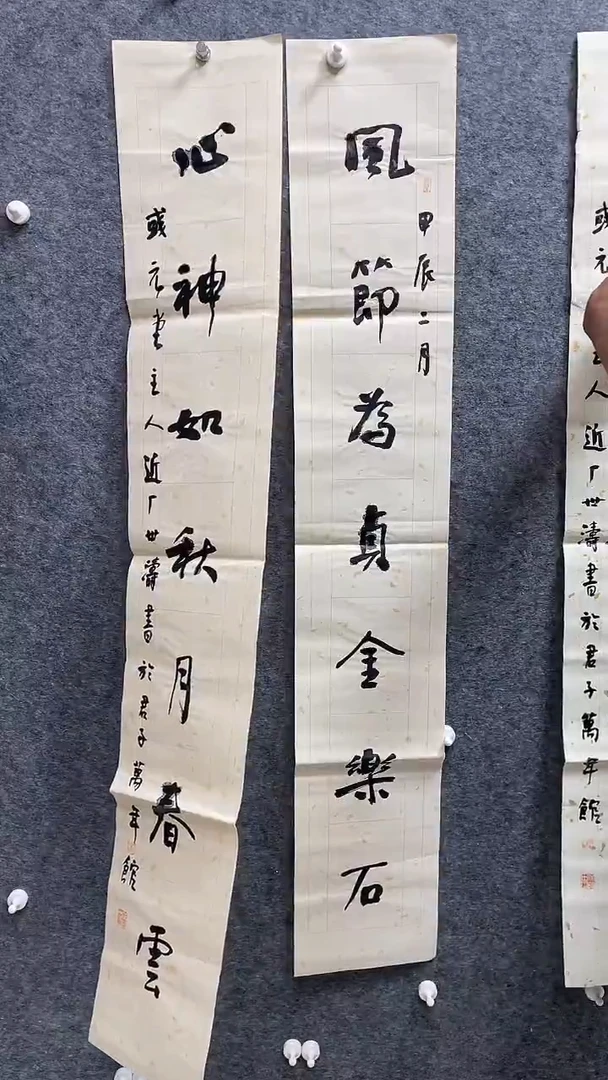 風節為貞金樂石
甲辰二月
心神如秋月春雲
元堂主人近厂世濤書於君子萬年館
人近厂世濤書於君子萬年館